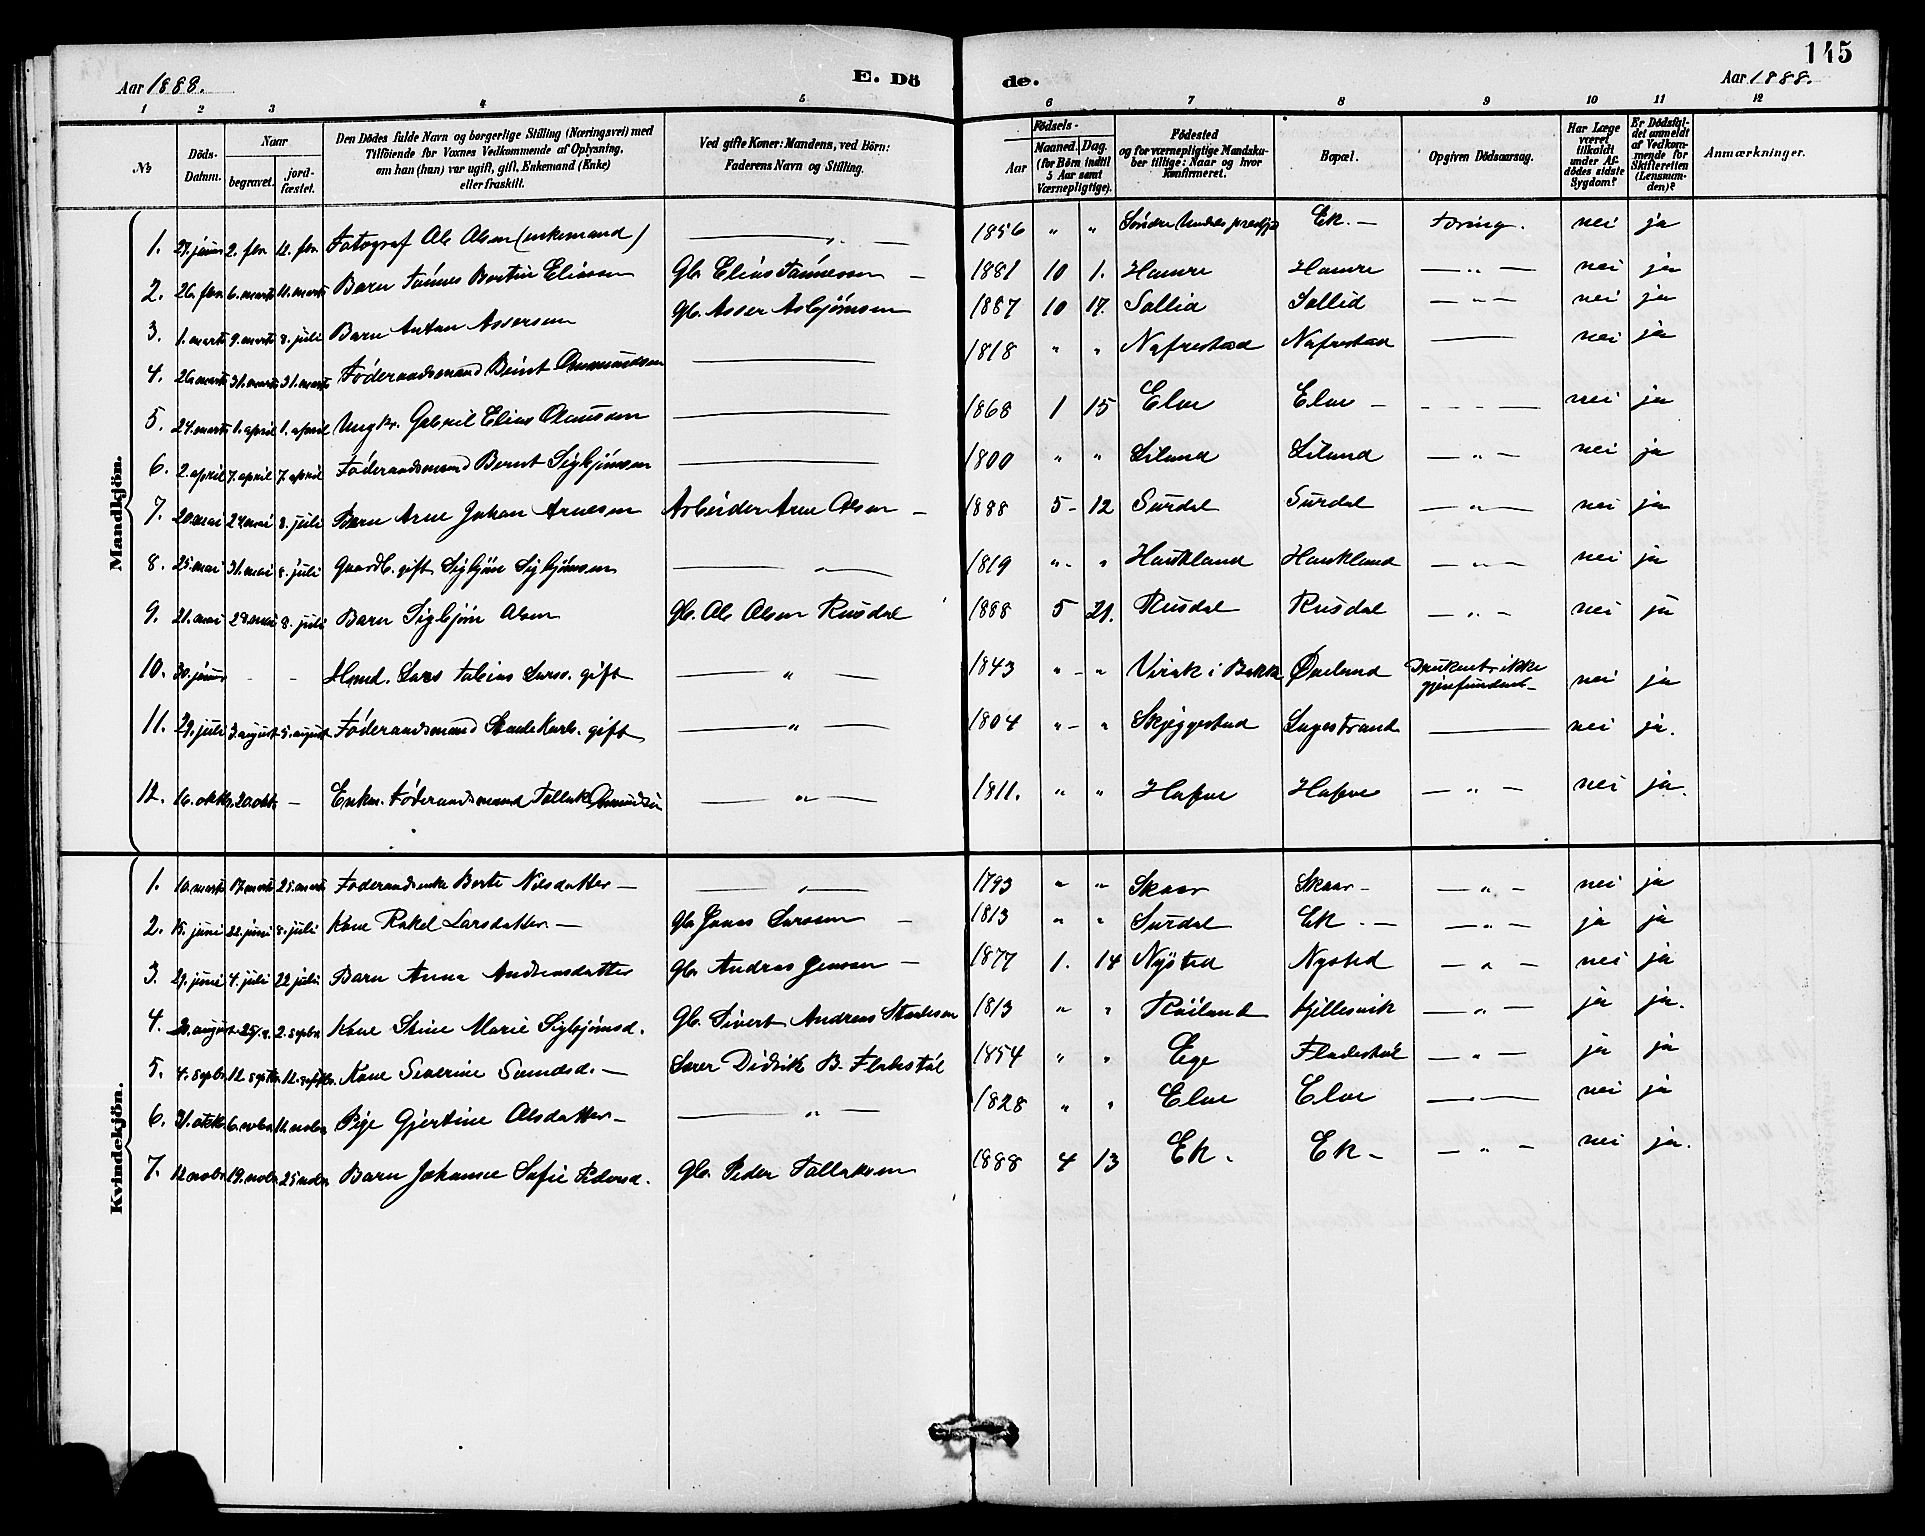 145
Aar 1888. E. Dö de. Aar 1888.
1 2 3 4 5 6 7 8 9 10 11 12
№ Döds-Datum. Naar begravet. jord-fæstet. Den Dödes fulde Navn og borgerlige Stilling (Næringsvei) med Tilföiende for Voxnes Vedkommende af Oplysning, om han (hun) var ugift, gift, Enkemand (Enke) eller fraskilt. Ved gifte Koner: Mandens, ved Börn: Faderens Navn og Stilling. Födsels- Aar Maaned. Dag. (for Börn indtil 5 Aar samt Værnepligtige). Födested og for værnepligtige Mandskaber tillige: Naar og hvor konfirmeret. Bopæl. Opgiven Dödsaarsag. Har Læge været tilkaldt under Afdödes sidste Sygdom? Er Dödsfaldet anmeldt af Vedkommende for Skifteretten (Lensmanden)? Anmærkninger.
Mandkjön.
1. 27. januar 2. febr. 12. febr. Fotograf Ole Olsen (enkemand) — „ — 1856 „ „ Søndre Undals prestgj. Ek. — Tæring. nei ja
2. 26. febr. 6. marts 11. marts Barn Tønnes Bertin Eliassen Gb. Elias Tønnesen — 1881 10 1. Hamre Hamre — „ — nei ja
3. 1. marts 9. marts 8. juli Barn Anton Assersen Gb. Asser Asbjørnsen 1887 10 17. Sollid Sollid — „ — nei ja
4. 26. marts 31. marts 31. marts Føderaadsmand Bernt Omundsen — 1818 „ „ Nafrestad Nafrestad — nei ja
5. 24. marts 1. april 1. april Ungkr. Gabriel Elias Olausen — 1868 1 15 Elve Elve — — nei ja
6. 2. april 7. april 7. april Føderaadsmand Bernt Sigbjørnsen — 1800 „ „ Liland Liland — „ — nei ja
7. 20. mai 24. mai 8. juli Barn Arne Johan Arnesen Arbeider Arne Olsen — 1888 5 - 12 Surdal Surdal — „ — nei ja
8. 25. mai 31. mai 8. juli Gaardb. gift Sigbjørn Sigbjørnsen — „ — 1819 „ - „ Haukland Haukland — „ — nei ja
9. 21. mai 28. mai 8. juli Barn Sigbjørn Olsen Gb. Ole Olsen Rusdal 1888 5 21. Rusdal Rusdal — „ — nei ja
10. 30. januar - - Hmd. Lars Tobias Larss. gift — „ — 1843 „ - „ Virak i Bakke Øveland Druknet ikke gjenfundet — nei ja
11. 29. juli 3. august 5. august Føderaadsmand Stale Karls. gift — „ — 1804 „ - „ Skjeggestad Lagestrand — nei ja.
12. 16. oktbr. 20 oktbr. - Enkm. Føderaadsmand Tollak Omundsen — „ — 1811. „ „ Hafve Hafve — „ — nei ja.
Kvindekjön.
1. 10. marts 17. marts 25. marts Føderaadsenke Berte Nilsdatter — — „ — 1793 „ „ Skaar Skaar — — „ — nei ja
2. 15. juni 22. juni 8. juli Kone Rakel Larsdatter — Gb. Jonas Larssen — 1813 „ „ Surdal Ek. — — „ — ja ja
3. 29. juni 4. juli 22 juli. Barn Anna Andreasdatter Gb. Andreas Jensen — 1877 1. 14 Nysted Nysted — „ — nei ja
4. 20. august 25/8. 2. septbr. Kone Stine Marie Sigbjørnsd. Gb. Sivert Andreas Stalesen 1813 „ „ Røiland Kjellesvik — „ — ja ja.
5. 4. septbr. 12. septbr. 12. septbr. Kone Severine Svendsd. — Lærer Didrik B. Fladestøl 1854 „ „ Ege Fladestøl — „ — ja ja
6. 31. oktbr. 6. novbr. 11. novbr. Pige Gjertine Olsdatter — — „ — 1828 „ „ Elve Elve — „ — nei ja
7. 12. novbr. 19. novbr. 25 novbr. Barn Johanne Sofie Pedersd. Gb. Peder Tollaksen 1888 4 13 Ek. Ek — — „ — nei ja.